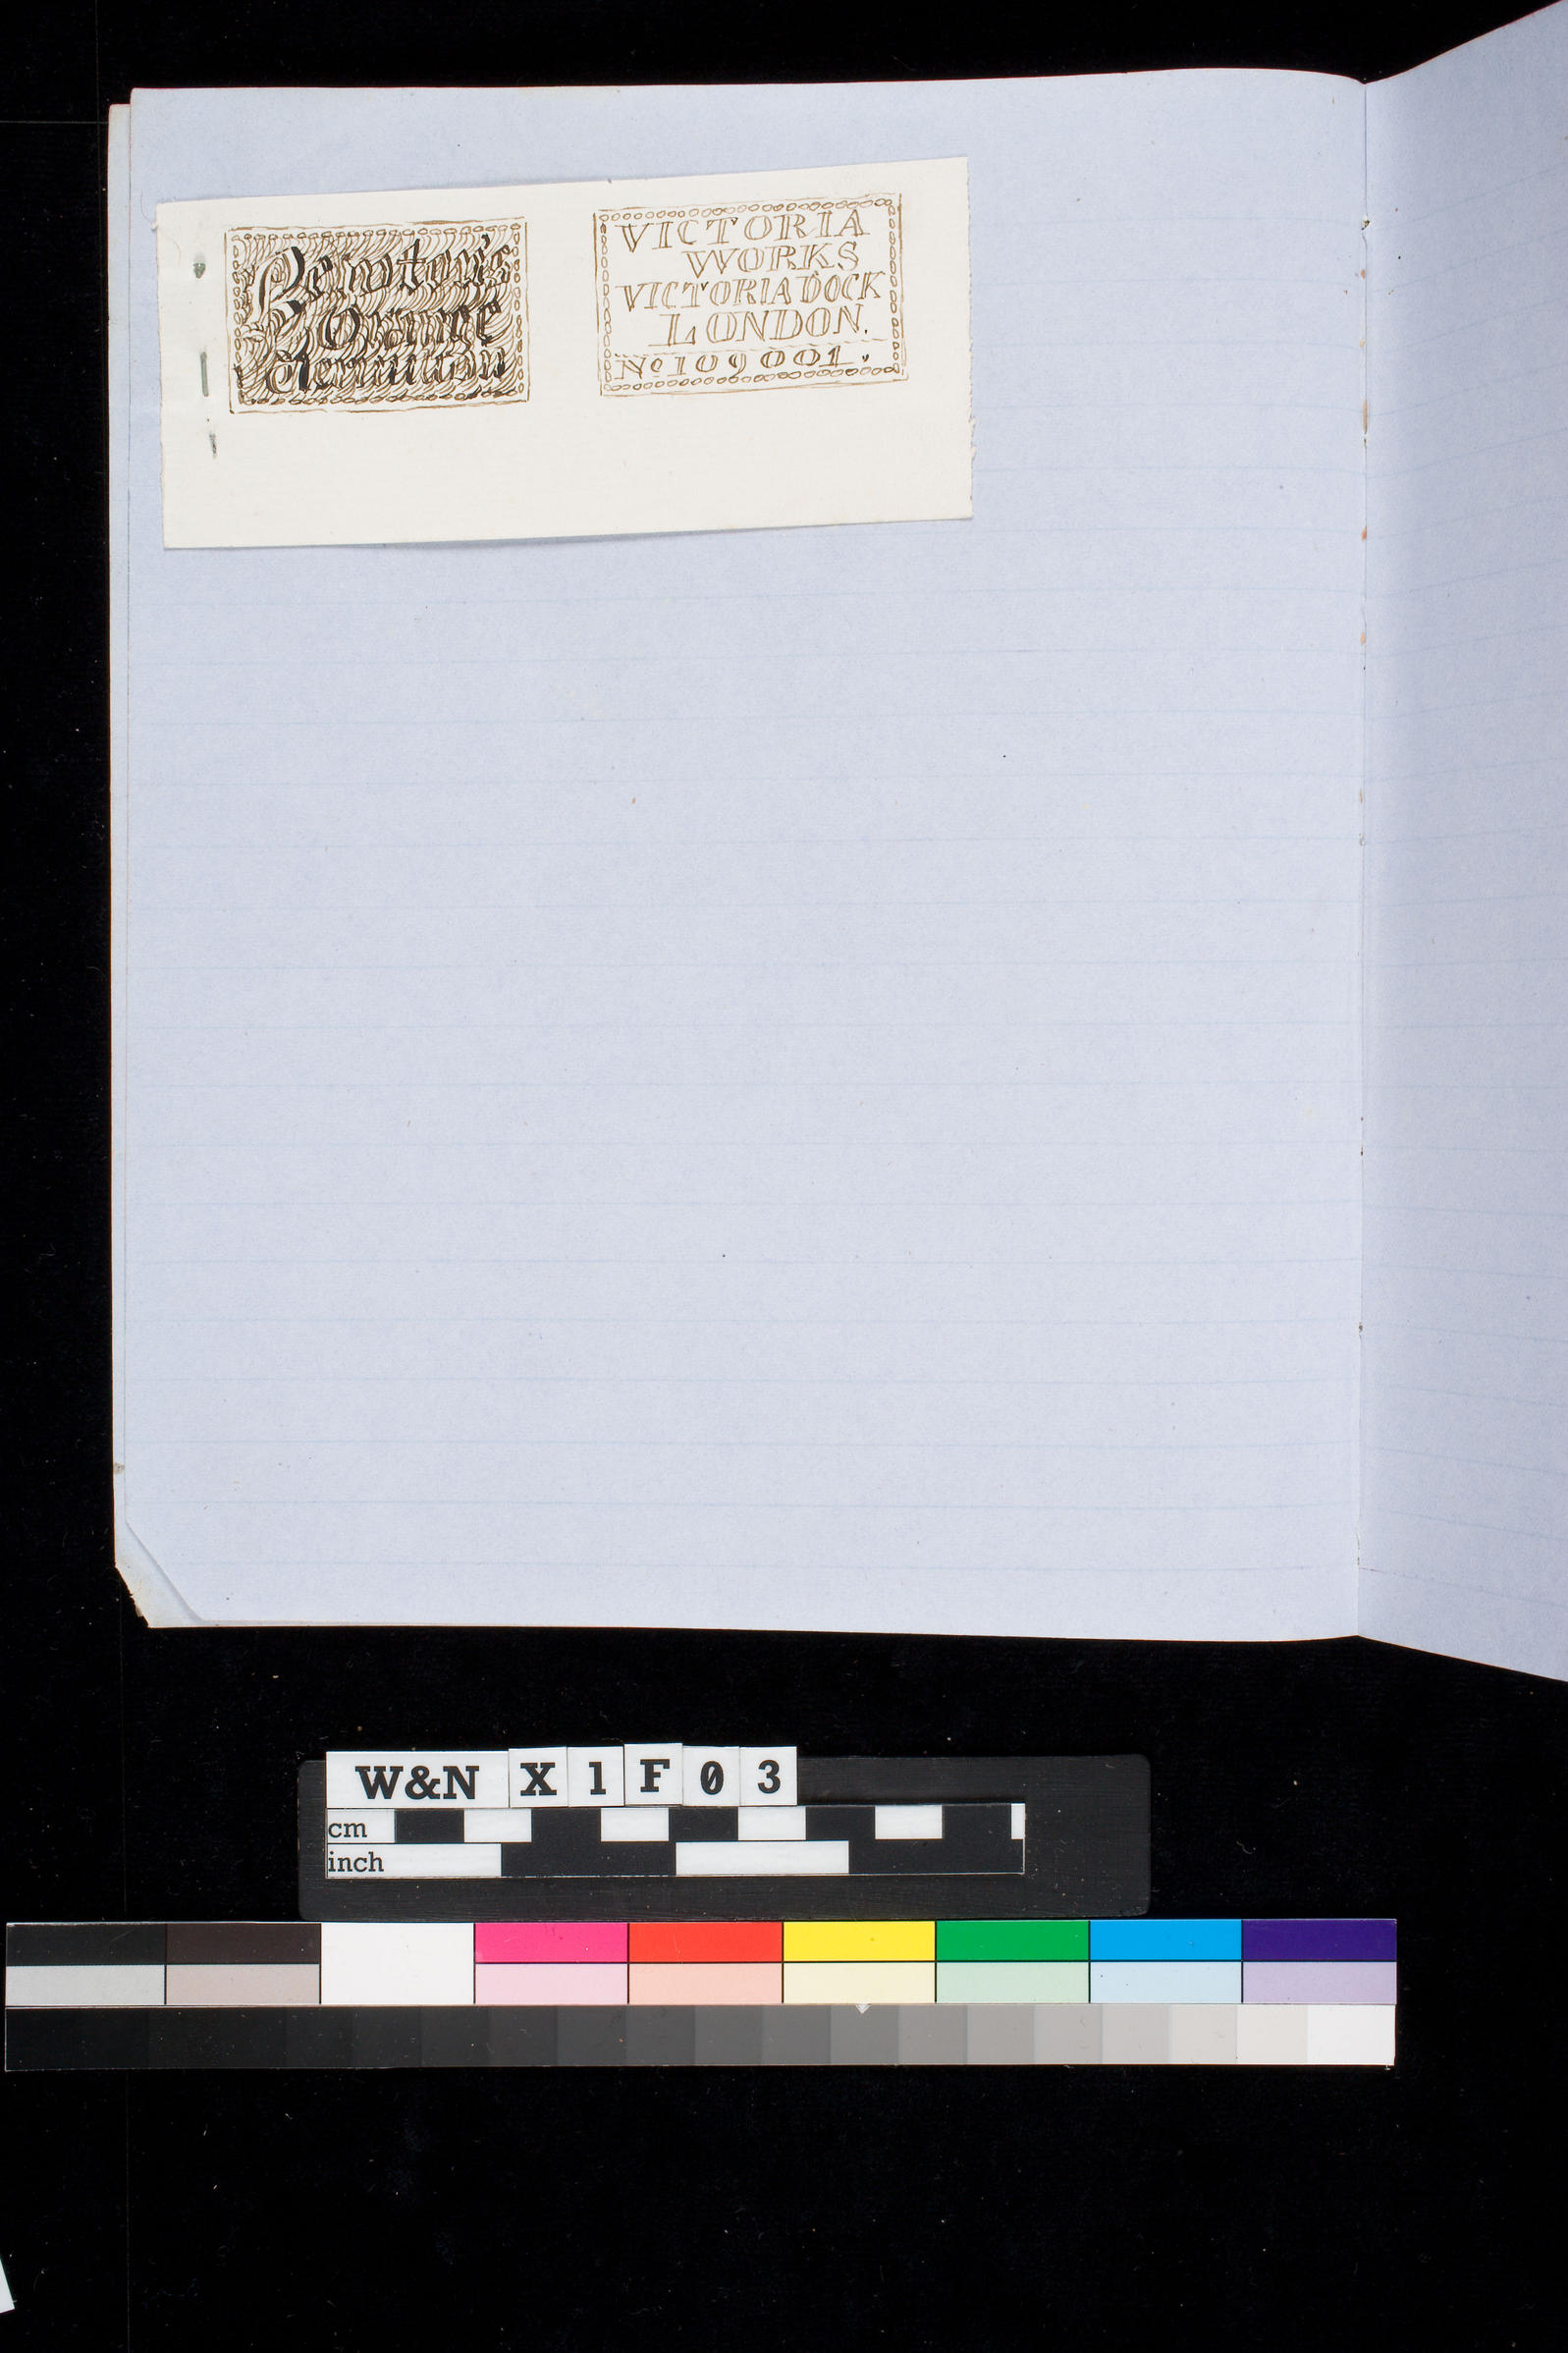 Orange
Vermilion
VICTORIA
WORKS
VICTORIA DOCK
LONDON.
No 109001.
W&N X1F03
cm
inch